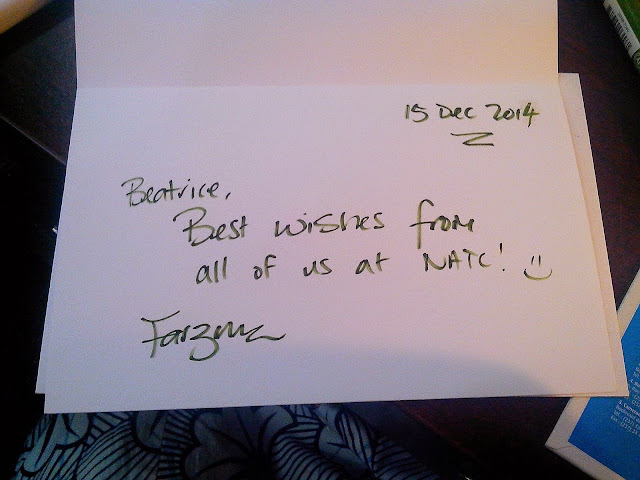 15 Dec 2014
Beatrice,
Best wishes from
all of us at NATC! :)
Farzana